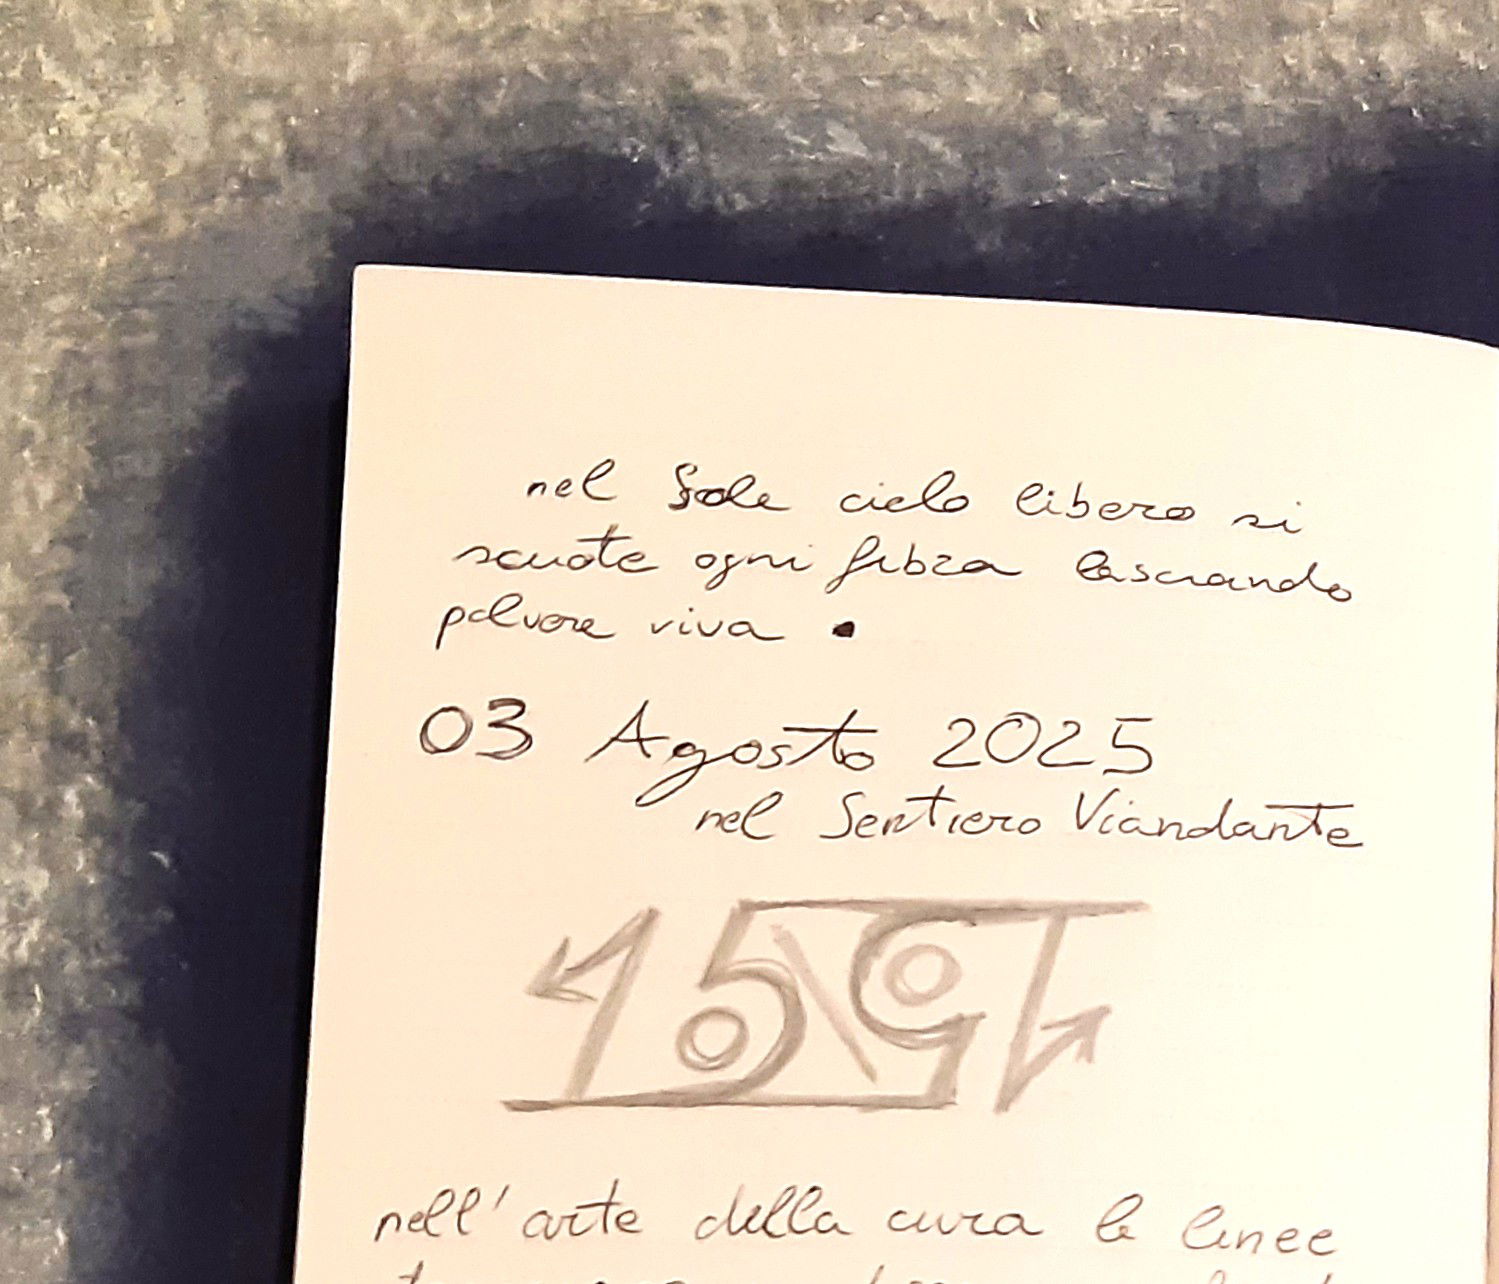 nel Sole cielo libero si
scuote ogni fibra lasciando
polvere viva .
03 Agosto 2025
nel Sentiero Viandante
nell'arte della cura le linee